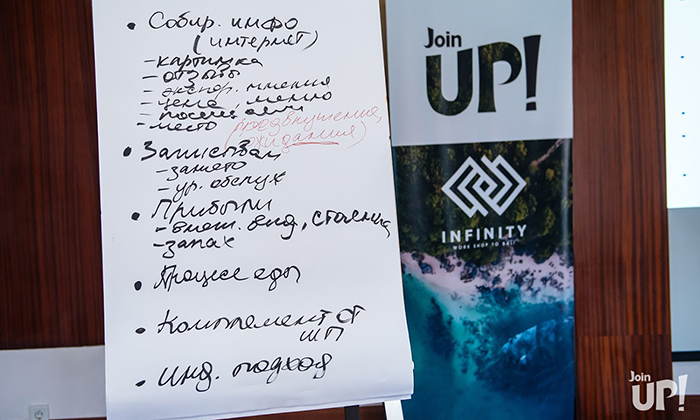 • Собир. инфо
(интернет)
- картинка
- отзывы
- экспер. мнения
- цена, меню
- место (предвкушение,
ожидания)
• Записывам
- занято
- ур. обслуж
• Прибыли
- внеш. вид,
- запах
• Процесс еды
• Комплемент от
ШП
• Инд. подход
Join
UP!
INFINITY
WORK SHOP TO BALI
Join
UP!